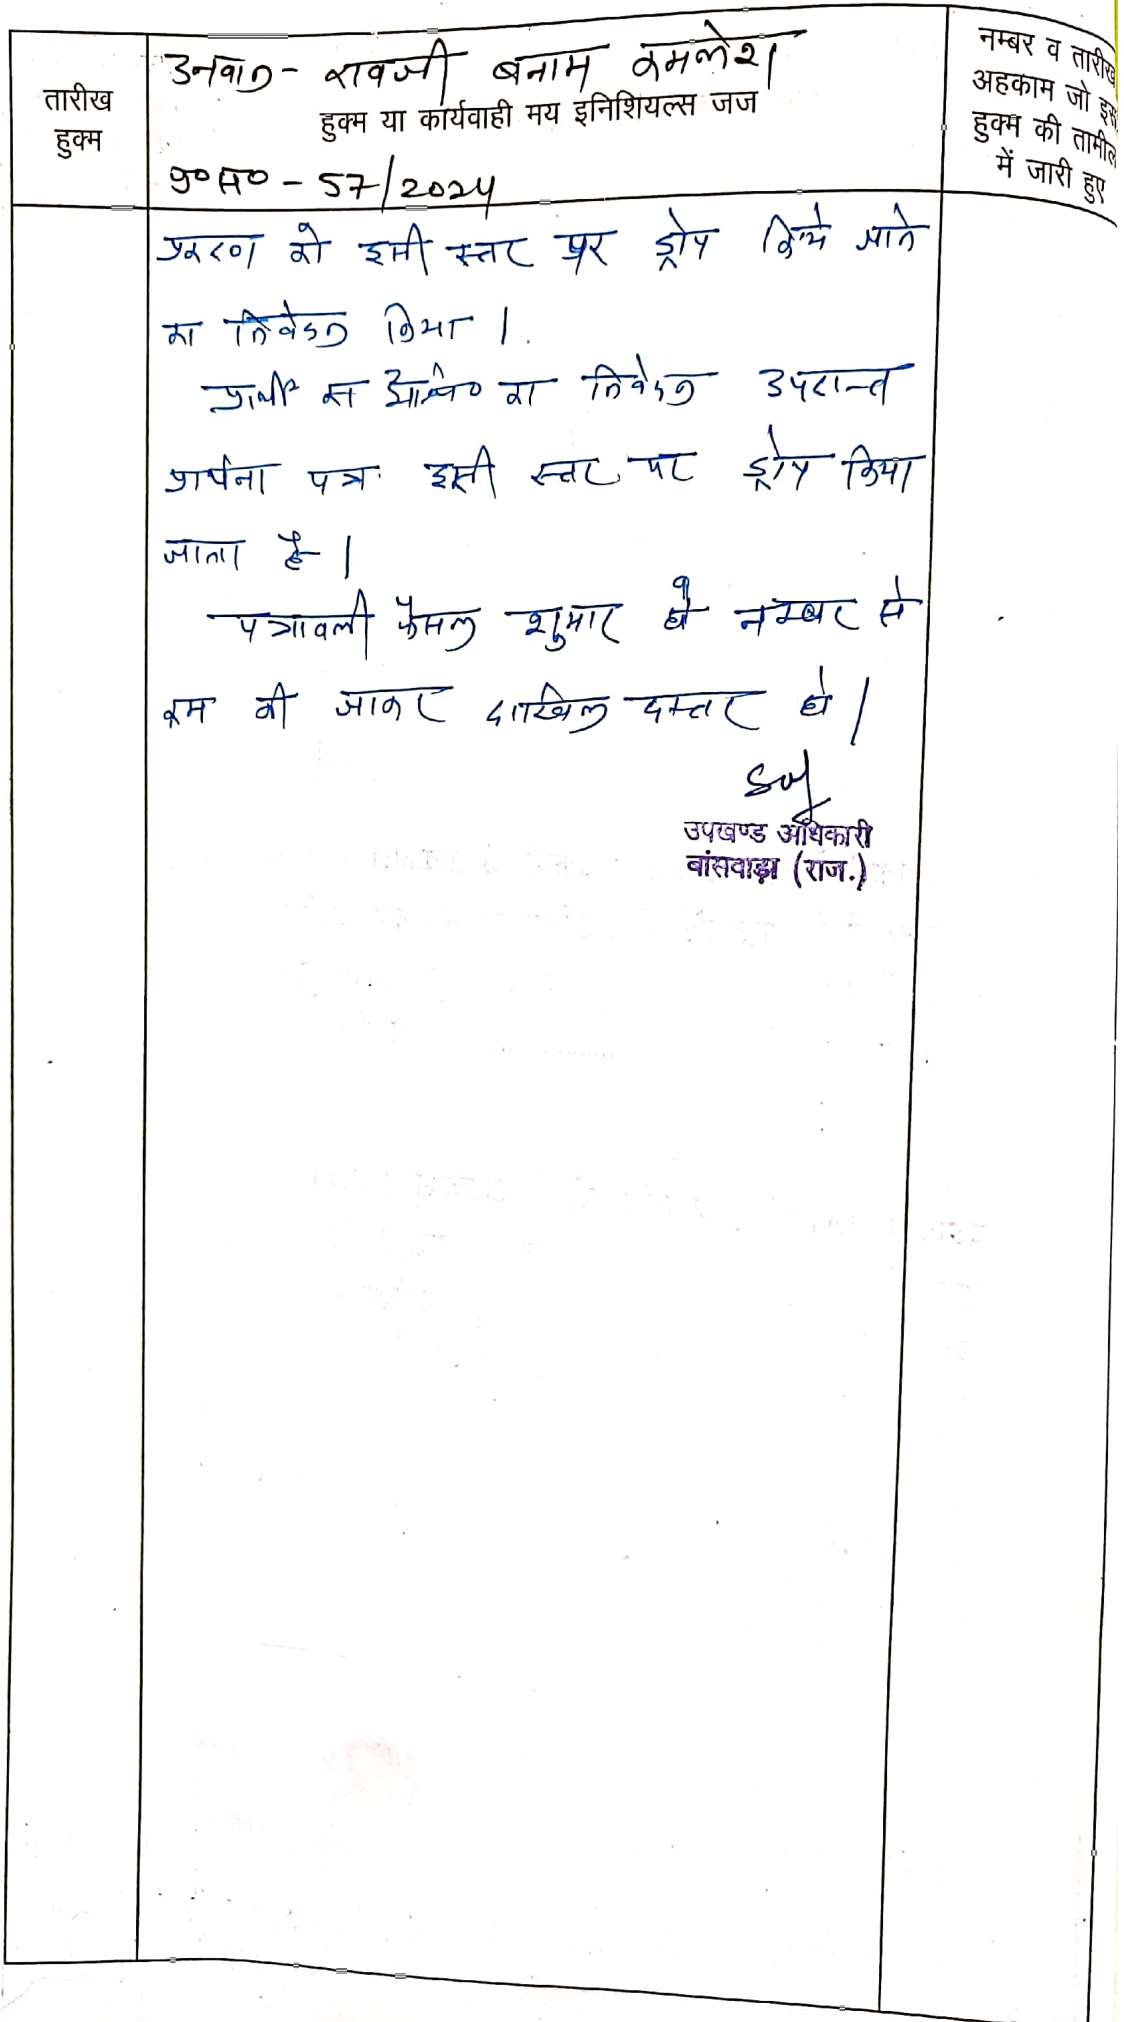 तारीख
हुक्म
उनवान - रावजी बनाम कमलेश
हुक्म या कार्यवाही मय इनिशियल्स जज
प्र० स० - 57/2024
नम्बर व तारीख
अहकाम जो इस
हुक्म की तामील
में जारी हुए
प्रकरण को इसी स्तर पर ड्रोप किये जाने
का निवेदन किया ।
प्रार्थी का निवेदन उपरान्त
प्रार्थना पत्र इसी स्तर पर ड्रोप किया
जाता है ।
पत्रावली फैसल शुमार हो नम्बर से
कम की जाकर दाखिल दफ्तर हो ।
उपखण्ड अधिकारी
बांसवाड़ा (राज.)